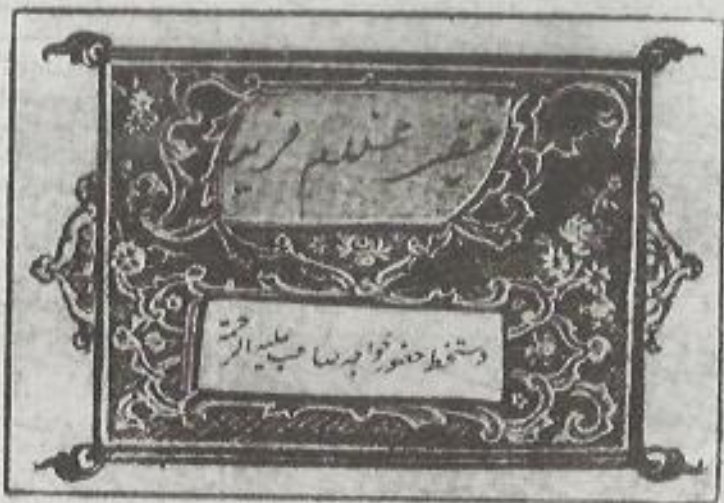 فقیر غلام فرید
دستخط حضور خواجہ صاحب علیہ الرحمۃ